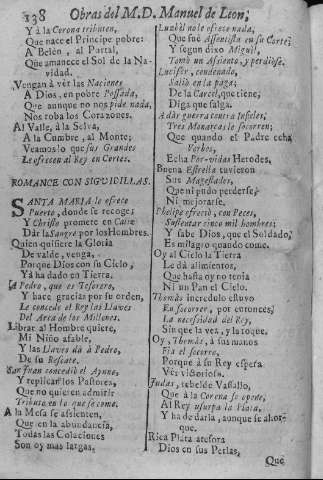 138 Obras del M.D. Manuel de Leon;
Y à la Corona tributen,
Que nace el Principe pobre:
A Belèn, al Portal,
Que amanece el Sol de la Na-
vidad.
Vengan à vèr las Naciones
A Dios, en pobre Possada,
Que aunque no nos pide nada,
Nos roba los Corazones.
Al Valle, à la Selva,
A la Cumbre, al Monte;
Veamos lo que sus Grandes
Le ofrecen al Rey en Cortes.
ROMANCE CON SIGUIDILLAS.
SANTA MARIA le ofrece
Puerto, donde se recoge;
Y Christo promete en Caliz
Dàr la Sangre por los Hombres.
Quien quisiere la Gloria
De valde, venga,
Porque Dios con su Cielo,
Yà ha dado en Tierra.
A Pedro, que es Tesorero,
Y hace gracias por su orden,
Le concede el Rey las Llaves
Del Arca de los Millones.
Librar al Hombre quiere,
Mi Niño afable,
Y las Llaves dà à Pedro,
De su Rescate.
San Juan concediò el Ayuno,
Y replicaron los Pastores,
Que no quieren admitir
Tributo en lo que se come.
A la Mesa se assienten,
Que en la abundancia,
Todas las Colaciones
Son oy mas largas,
Luzbèl no le ofrece nada,
Que fuè Assentista en su Corte;
Y segun dixo Miguèl,
Tomò un Assiento, y perdiose.
Lucifer, condenado,
Saliò en la paga;
De la Carcel, que tiene,
Diga que salga.
A dàr guerra contra Infieles,
Tres Monarcas le socorren;
Que quando el Padre echa
Verbos,
Echa Por-vidas Herodes,
Buena Estrella tuvieron
Sus Magestades,
Que ni pudo perderse,
Ni mejorarse.
Phelipe ofreciò, con Peces,
Sustentar cinco mil hombres;
Y sabe Dios, que el Soldado,
Es milagro quando come.
Oy al Cielo la Tierra
Le dà alimentos,
Que hasta oy no tenia
Ni un Pan el Cielo.
Thomàs incredulo estuvo
En socorrer, por entonces,
La necessidad del Rey,
Sin que la vea, y la toque.
Oy, Thomàs, à sus manos
Fia el socorro,
Porque à su Rey espera
Vèr victorioso.
Judas, rebelde Vassallo,
Que à la Corona se opone,
Al Rey usurpa la Plata,
Y ha de daria, aunque se ahor-
que.
Rica Plata atesora
Dios en sus Perlas,
Que